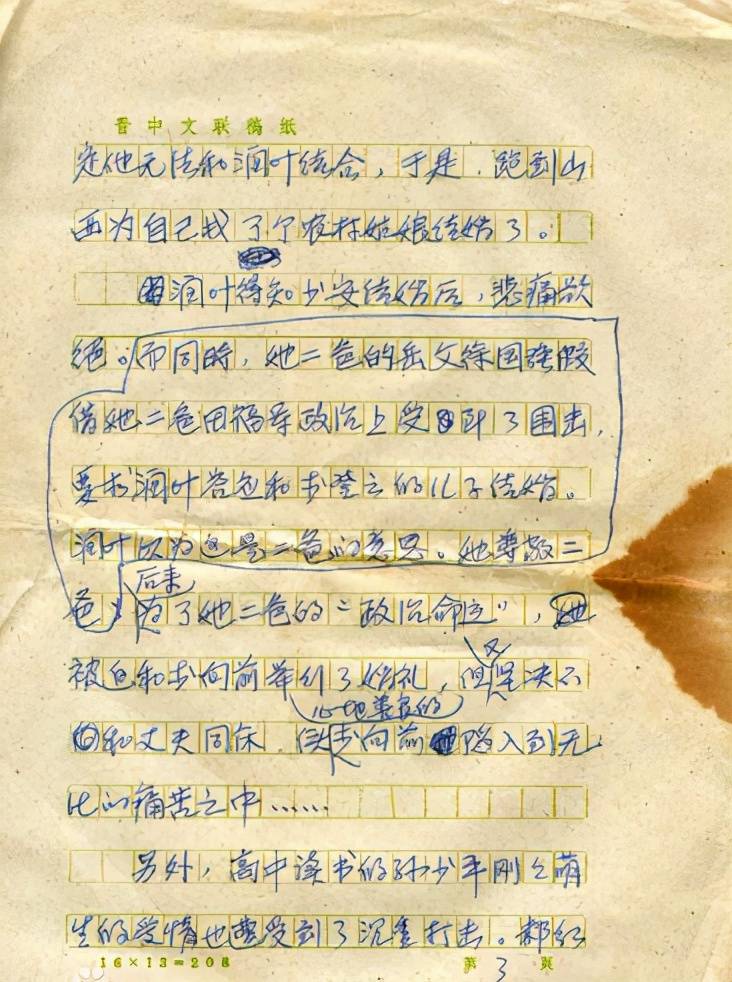 晋中文联稿纸
定他无法和润叶结合，于是，跑到山
西为自己找了个农村姑娘结婚了。
润叶得知少安结婚后，悲痛欲
绝。而同时，她二爸的岳父徐国强假
借她二爸田福军政治上受到了围击，
要求润叶答应和李登云的儿子结婚。
润叶以为这是二爸的意思。她尊敬二
爸，
后来
为了她二爸的“政治命运”，她
被迫和李向前举行了婚礼，但
又
坚决不
心地善良的
和丈夫同床，使李向前陷入到无
比的痛苦之中……
另外，高中读书的孙少平刚刚萌
生的爱情也遭受到了沉重打击。郝红
16×13=208
第3页